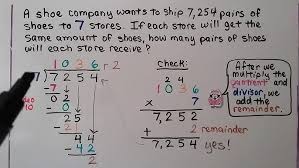 A shoe company wants to ship 7,254 pairs of
shoes to 7 stores. If each store will get the
same amount of shoes, how many pairs of shoes
will each store receive?
1 0 3 6 r 2
7 2 5 4
- 7
0 2
- 0
2 5
- 2 1
4 4
- 4 2
2
Check:
2 4
1 0 3 6
x 7
7, 2 5 2
+ 2 remainder
7, 2 5 4 yes!
After we
multiply the
quotient and
divisor, we
add the
remainder.